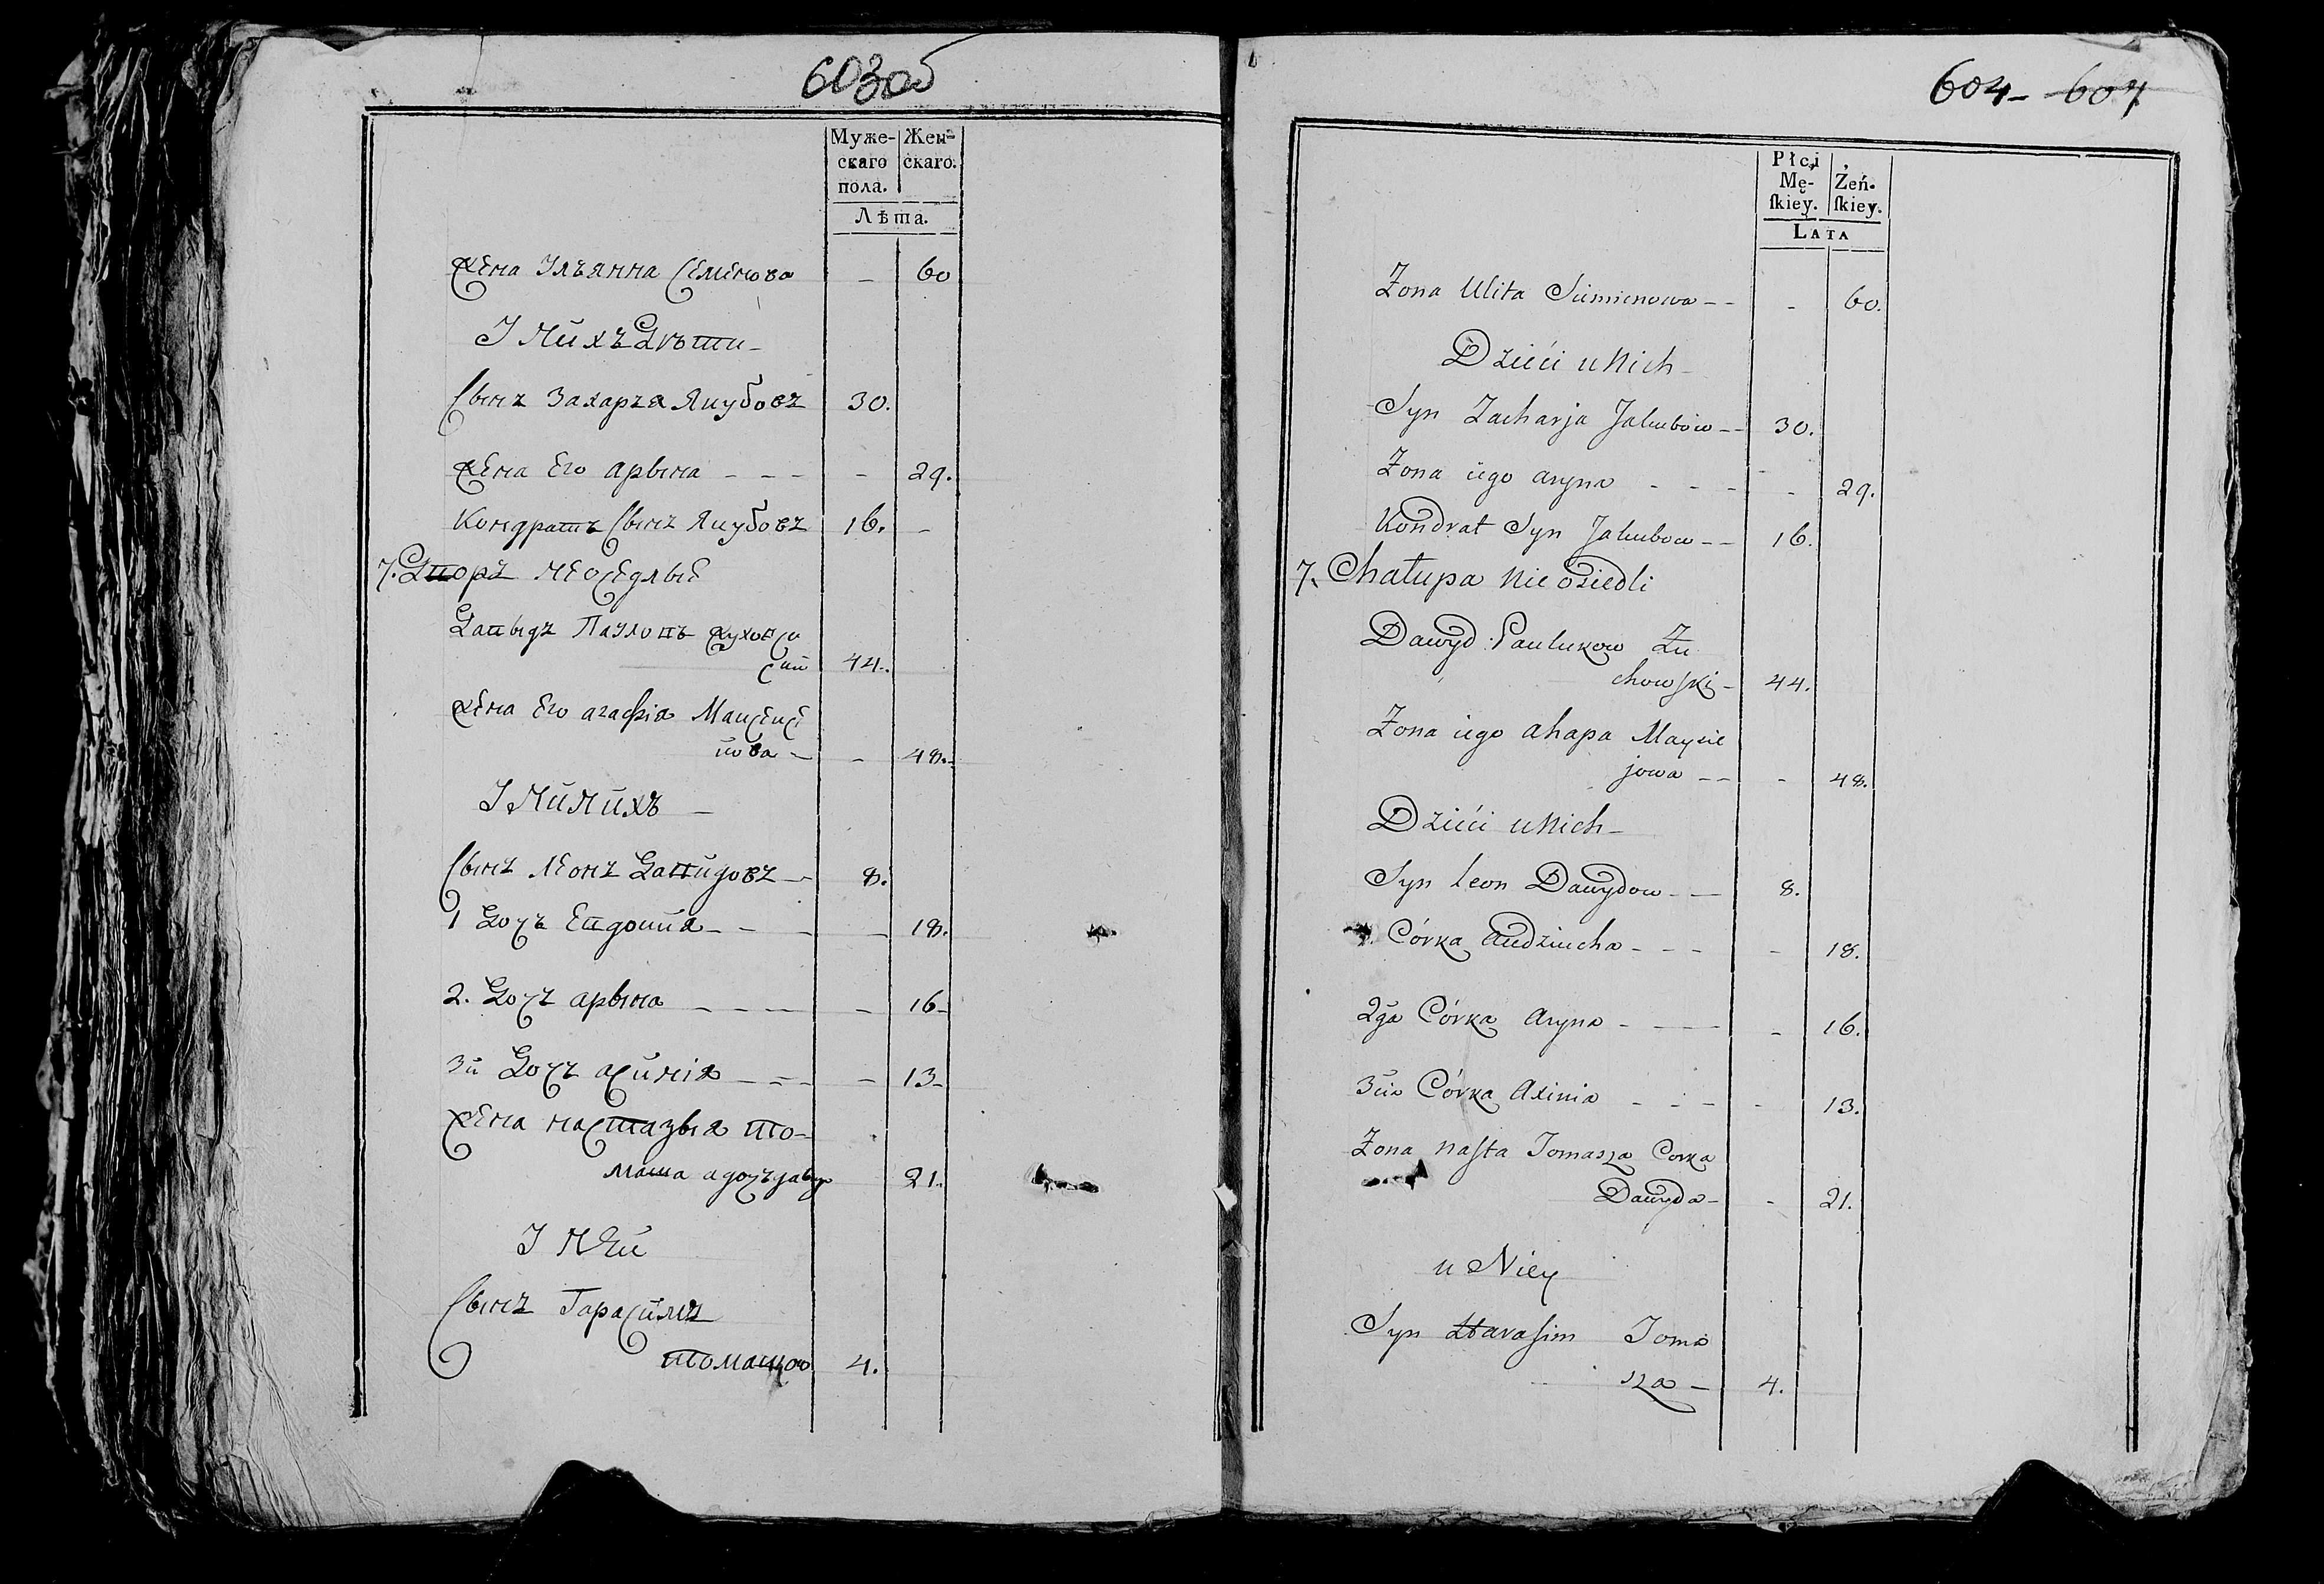 603об
Муже- Жен-
скаго скаго.
пола.
Лѣта.
жена Ульянна Семенова – 60
У нихъ дѣти –
сынъ Захарья Якубовъ 30.
жена его арына – – – – 29.
Кондратъ сынъ Якубовъ 16. –
7. Дворъ неоседлые
Давыдъ Паулювъ жухов
ски 44.
жена его агафія
– – 48. –
У нихъ –
сынъ Леонъ Давидовъ – 8.
1 дочъ Евдокия – – – – 18.
2. дочъ арына – – – – 16 –
3й дочъ аксиния – – – – 13 –
жена настазыя то-
маша а дочъ давы 21.
У ней
сынъ Гарасимъ
томашов 4.
604 – 607
Płci Żeń-
Mę- ſkiey.
ſkiey.
LATA
Zona Ulita Siemienowa – – – 60.
Dzieci u Nich –
Syn Zacharja Jakubow – – 30.
Zona iego aryna – – – – 29.
Kondrat Syn Jakubow – – 16.
7. Chałupa Nie osiedli
Dawyd Paulukow Zu
chowſki – 44.
Zona iego ahapa Maysie
jowa – – – 48.
Dzieci u Nich –
Syn Leon Dawydow – – 8.
Córka Audziucha – – – – 18.
2ga Córka Aryna – – – – 16.
3cia Córka Axinia – – – – 13.
Zona Naſta Tomasza Corka
Dawyda – – 21.
u Niey
Syn Harasim Toma
sza – 4.